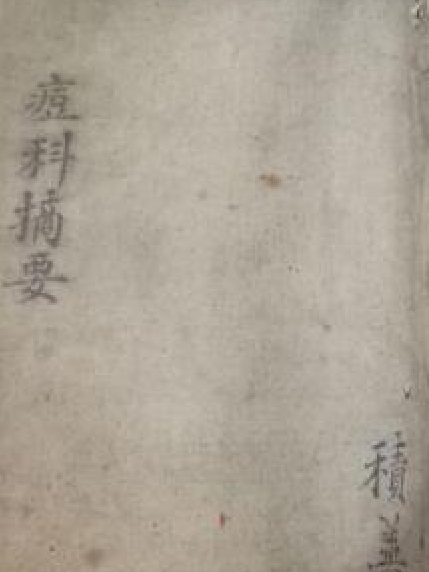 痘科摘要
積善